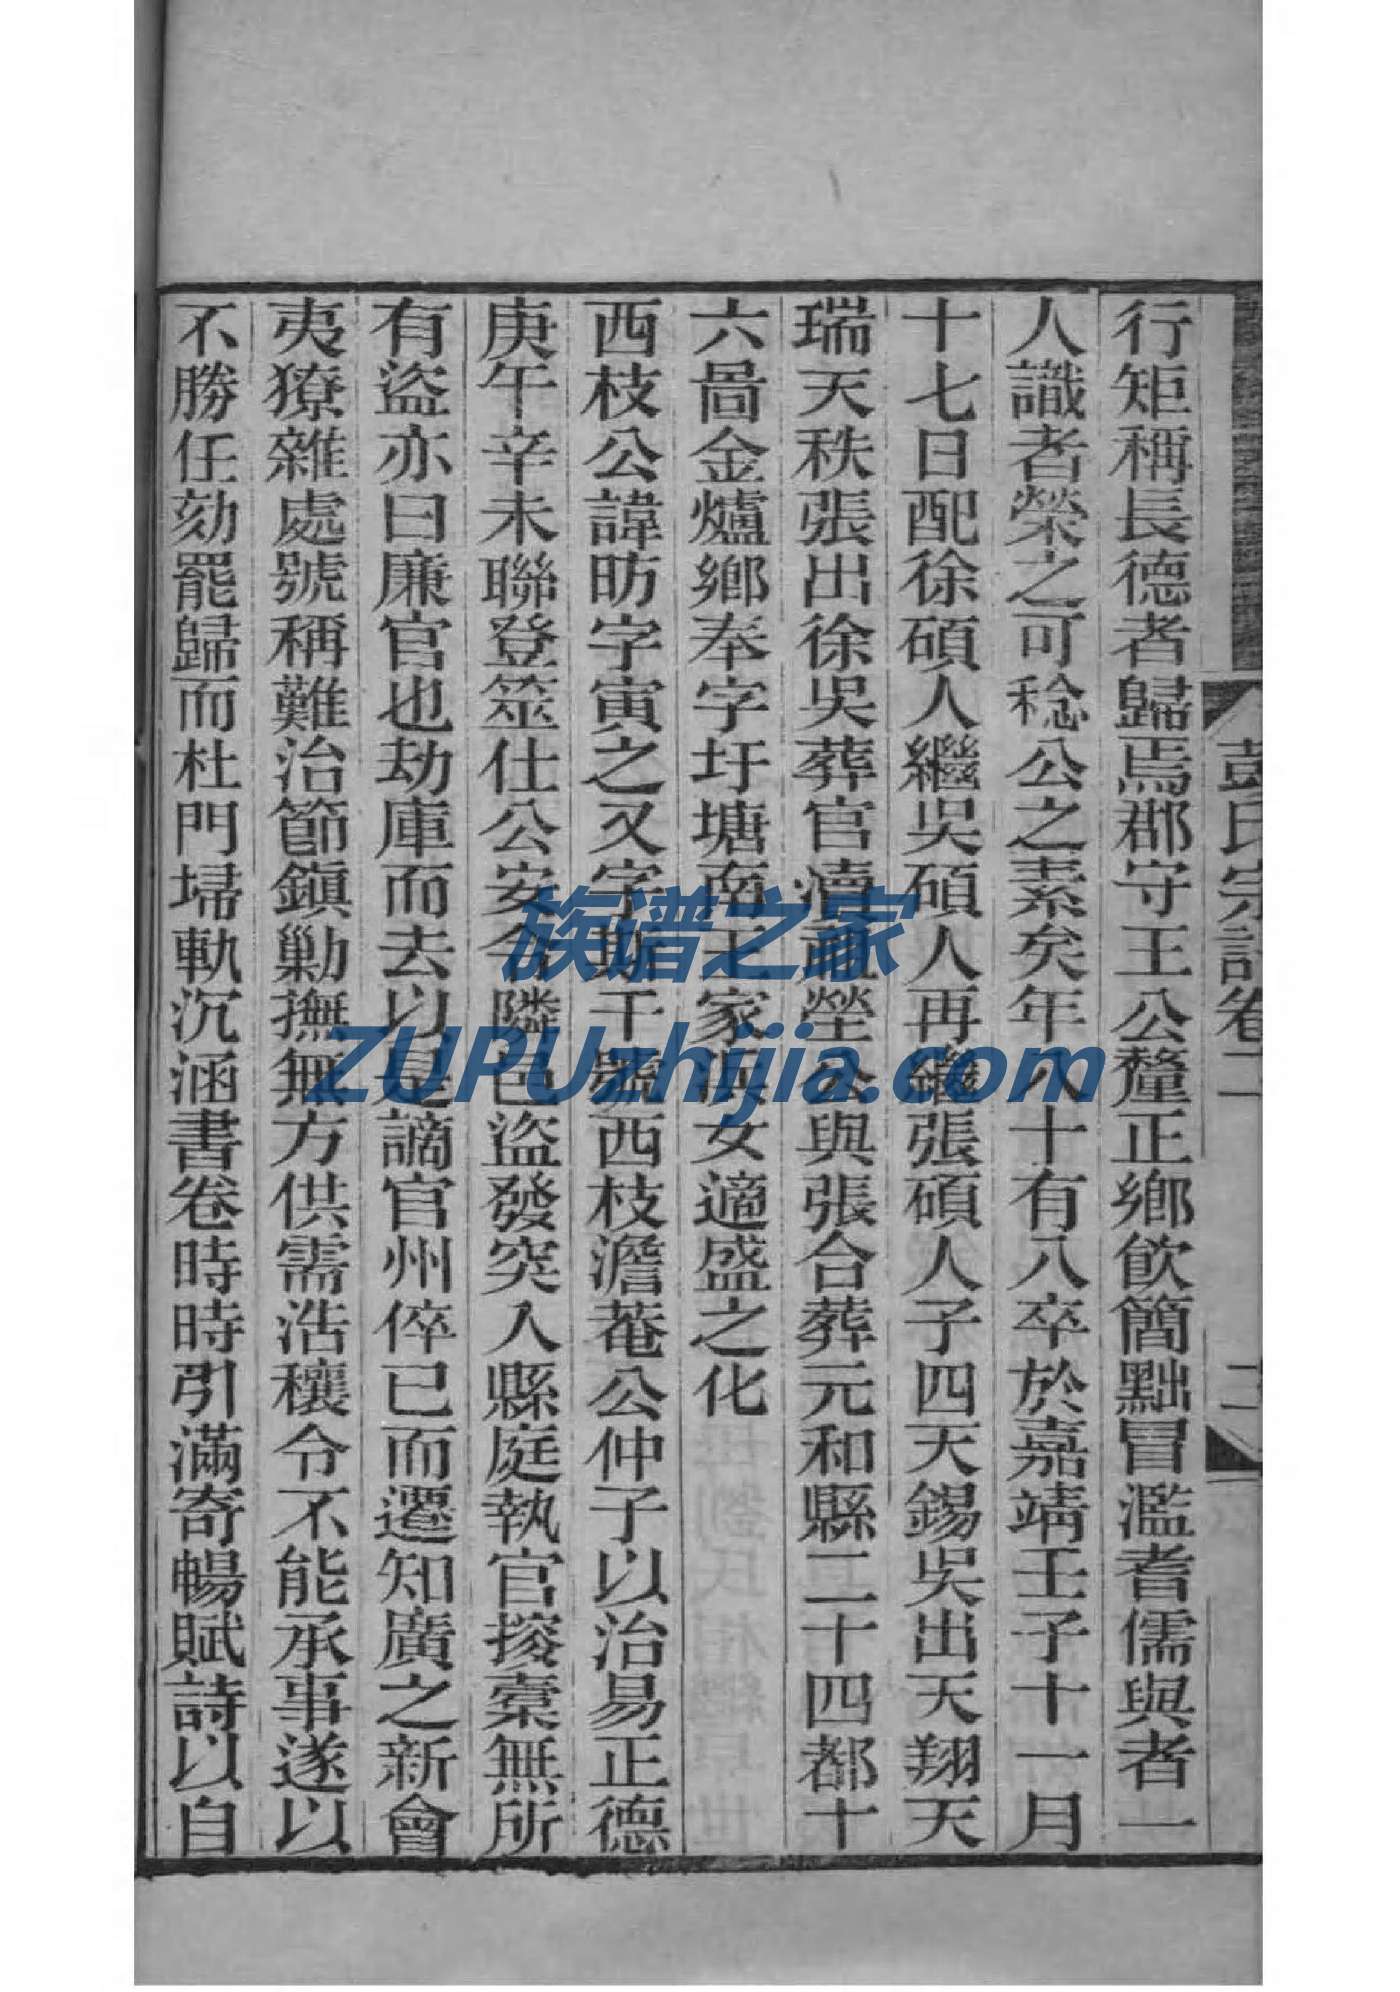 彭氏宗譜卷二
行矩稱長德者歸焉郡守王公釐正鄉飲簡黜冒濫耆儒與者一
人識者榮之可稔公之素矣年八十有八卒於嘉靖壬子十一月
十七日配徐碩人繼吳碩人再繼張碩人子四天錫吳出天翔天
瑞天秩張出徐吳葬官瀆祖塋公與張合葬元和縣二十四都十
六啚金爐鄉奉字圩塘南王家浜女適盛之化
西枝公諱昉字寅之又字斯干號西枝澹菴公仲子以治易正德
庚午辛未聯登筮仕公安令隣邑盜發突入縣庭執官搜橐無所
有盜亦曰廉官也劫庫而去以是謫官州倅已而遷知廣之新會
夷獠雜處號稱難治節鎮勦撫無方供需浩穰令不能承事遂以
不勝任劾罷歸而杜門埽軌沉涵書卷時時引滿寄暢賦詩以自
族谱之家
ZUPUzhijia.com